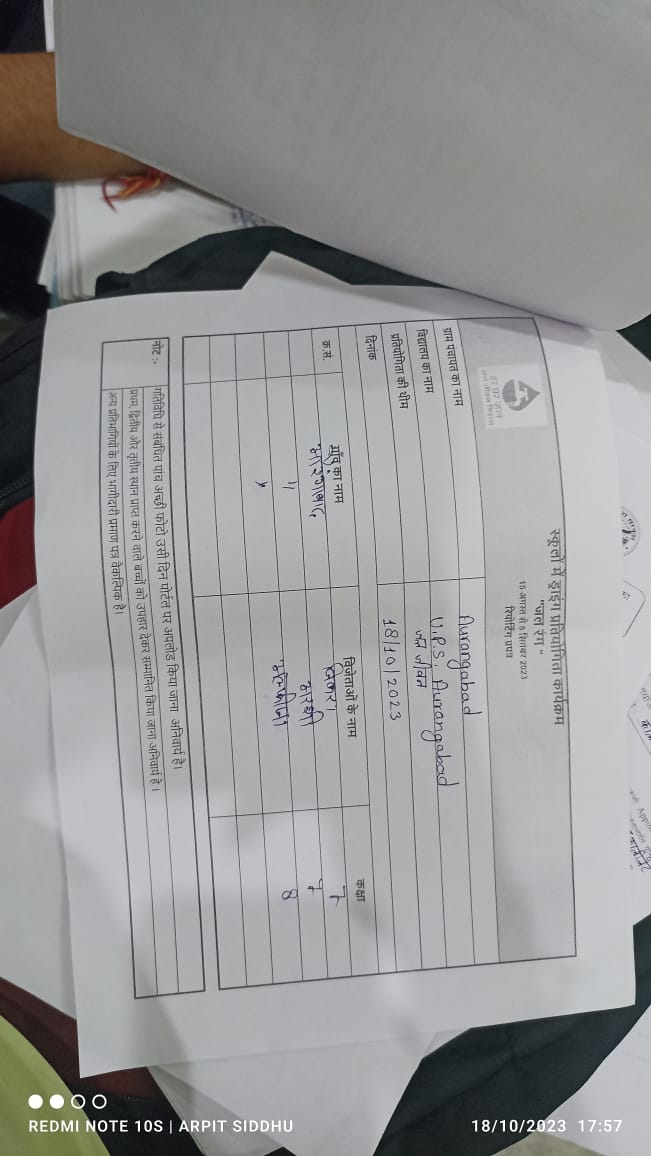 हर घर जल
जल जीवन मिशन
स्कूलों में ड्राइंग प्रतियोगिता कार्यक्रम
"जल रंग"
15 अगस्त से 8 सितंबर 2023
रिपोर्टिंग प्रपत्र
ग्राम पंचायत का नाम Aurangabad
विद्यालय का नाम U.P.S. Aurangabad
प्रतियोगिता की थीम जल जीवन
दिनांक 18/10/2023
क्र.सं. गाँव का नाम विजेताओं के नाम कक्षा
औरंगाबाद 7
" 7
" 8
नोट :- गतिविधि से संबंधित पांच अच्छी फोटो उसी दिन पोर्टल पर अपलोड किया जाना अनिवार्य है।
प्रथम, द्वितीय और तृतीय स्थान प्राप्त करने वाले बच्चों को उपहार देकर सम्मानित किया जाना अनिवार्य है।
अन्य प्रतिभागियों के लिए भागीदारी प्रमाण पत्र वैकल्पिक है।
REDMI NOTE 10S | ARPIT SIDDHU
18/10/2023 17:57